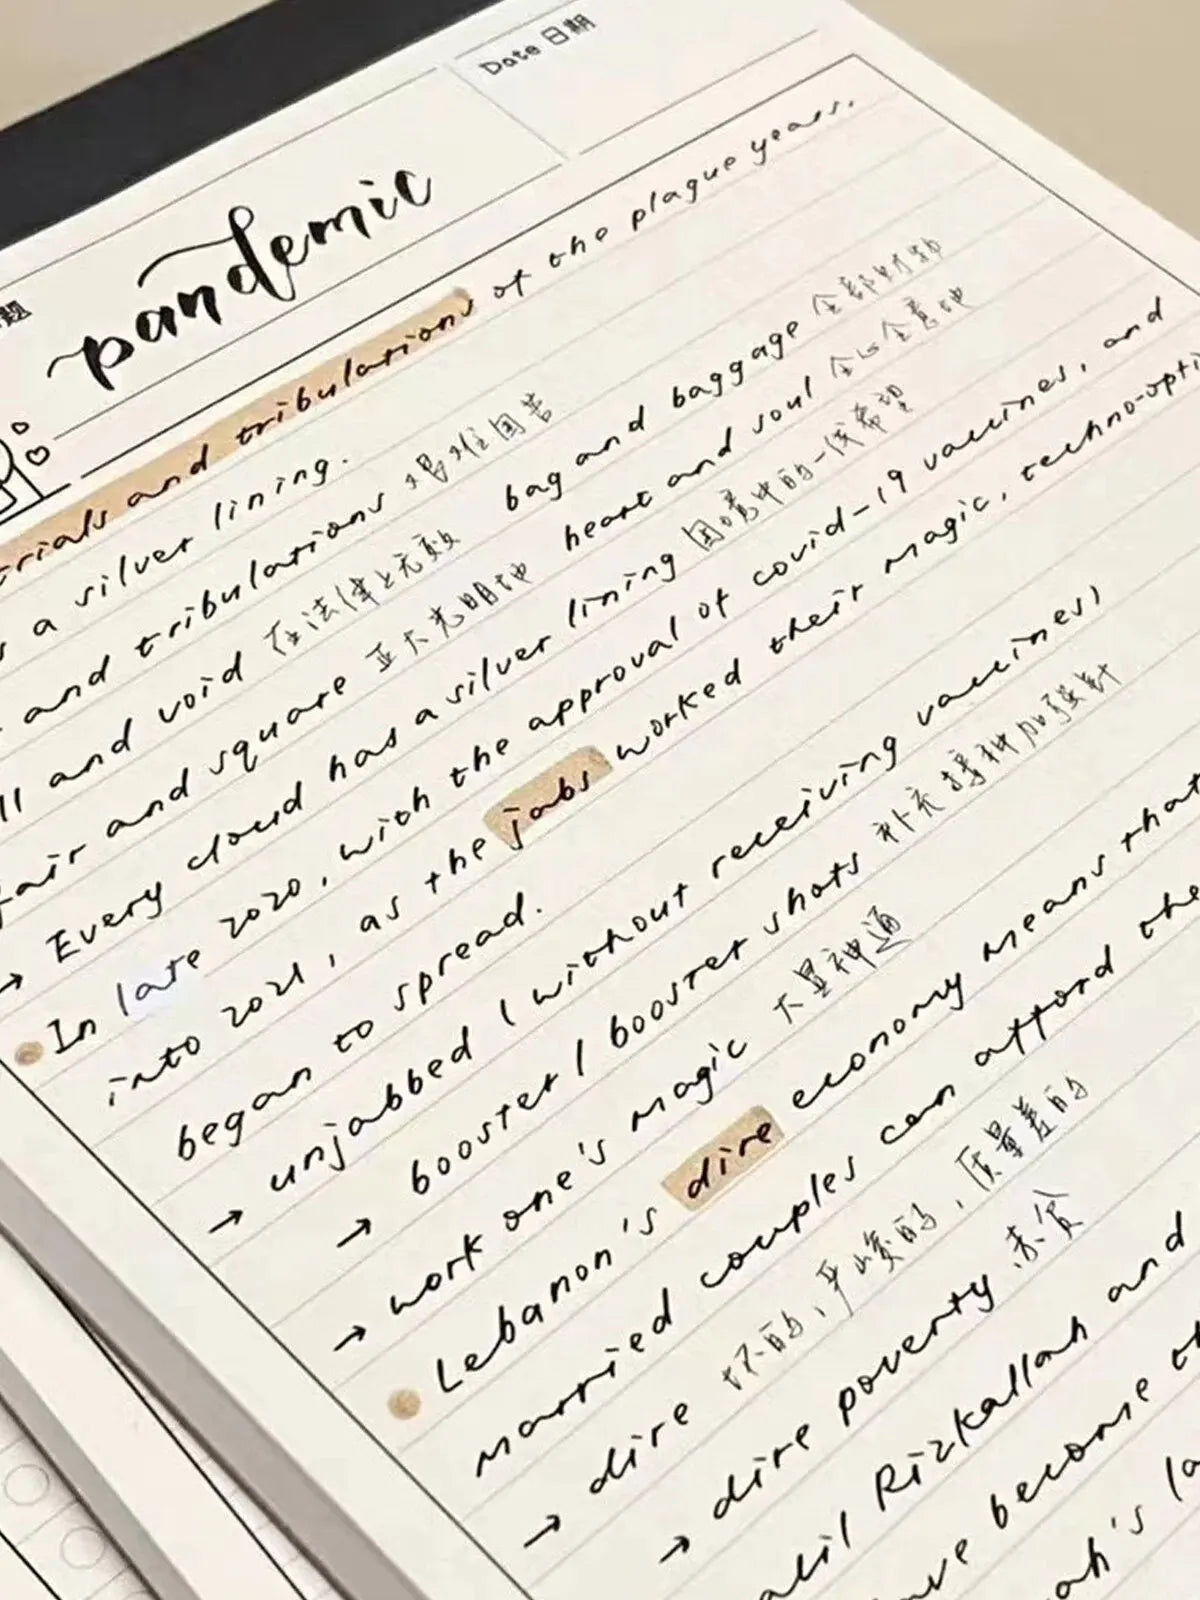 Date 日期
题
pandemic
trials and tribulations of the plague years.
a silver lining.
and tribulations 艰难困苦
bag and baggage 全部财物
and void 在法律上无效
heart and soul 全心全意地
fair and square 正大光明地
Every cloud has a silver lining 困境中的一线希望
In late 2020, with the approval of covid-19 vaccines, and
into 2021, as the jabs worked their magic, techno-opti
began to spread.
→ unjabbed (without receiving vaccines)
→ booster / booster shots 补充接种加强针
→ work one's magic 大显神通
Lebanon's dire economy means that
married couples can afford the
→ dire 坏的, 严峻的, 质量差的
→ dire poverty 赤贫
Rizkallah and
become